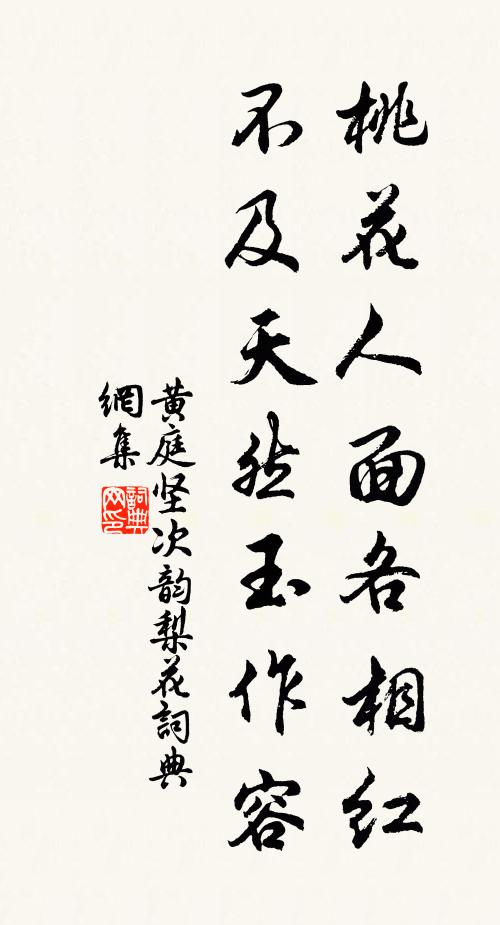 桃花人面各相红
不及天然玉作容
黄庭坚次韵梨花詞典
網集
詞典
网印